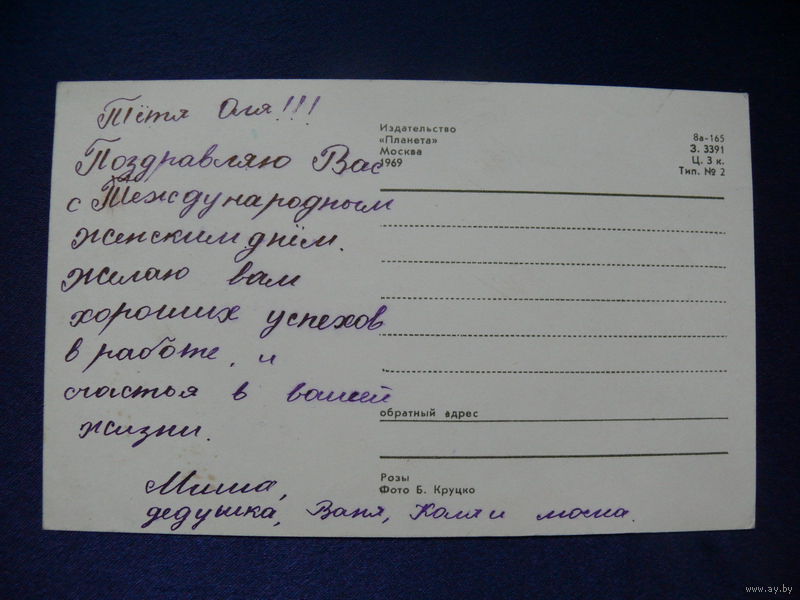 Тётя Оля!!!
Поздравляю Вас
с Международным
женским днём.
желаю вам
хороших успехов
в работе, и
счастья в вашей
жизни.
Миша,
дедушка, Ваня, Коля и мама.
Издательство
«Планета»
Москва
1969
8а-165
З. 3391
Ц. 3 к.
Тип. № 2
обратный адрес
Розы
Фото Б. Круцко
www.ay.by